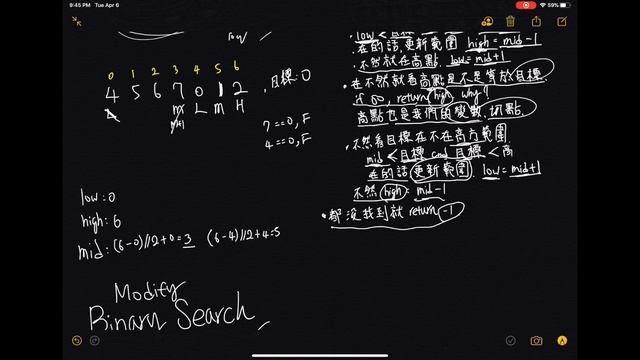 9:45 PM Tue Apr 6
59%
0 1 2 3 4 5 6
4 5 6 7 0 1 2
目標:0
L m H
7==0, F
4==0, F
low: 0
high: 6
mid: (6-0)//2+0=3 (6-4)//2+4=5
Modify
Binary Search
low <
在的話, 更新範圍 high = mid-1
不然就在高點, low = mid+1
·在不然就看高點是不是等於目標,
if so, return high, why?
高點也是我們的變數,
·不然看目標在不在高方範圍
mid < 目標 and 目標 < 高
在的話 更新範圍, low = mid+1
不然 high = mid-1
·都沒找到就 return -1